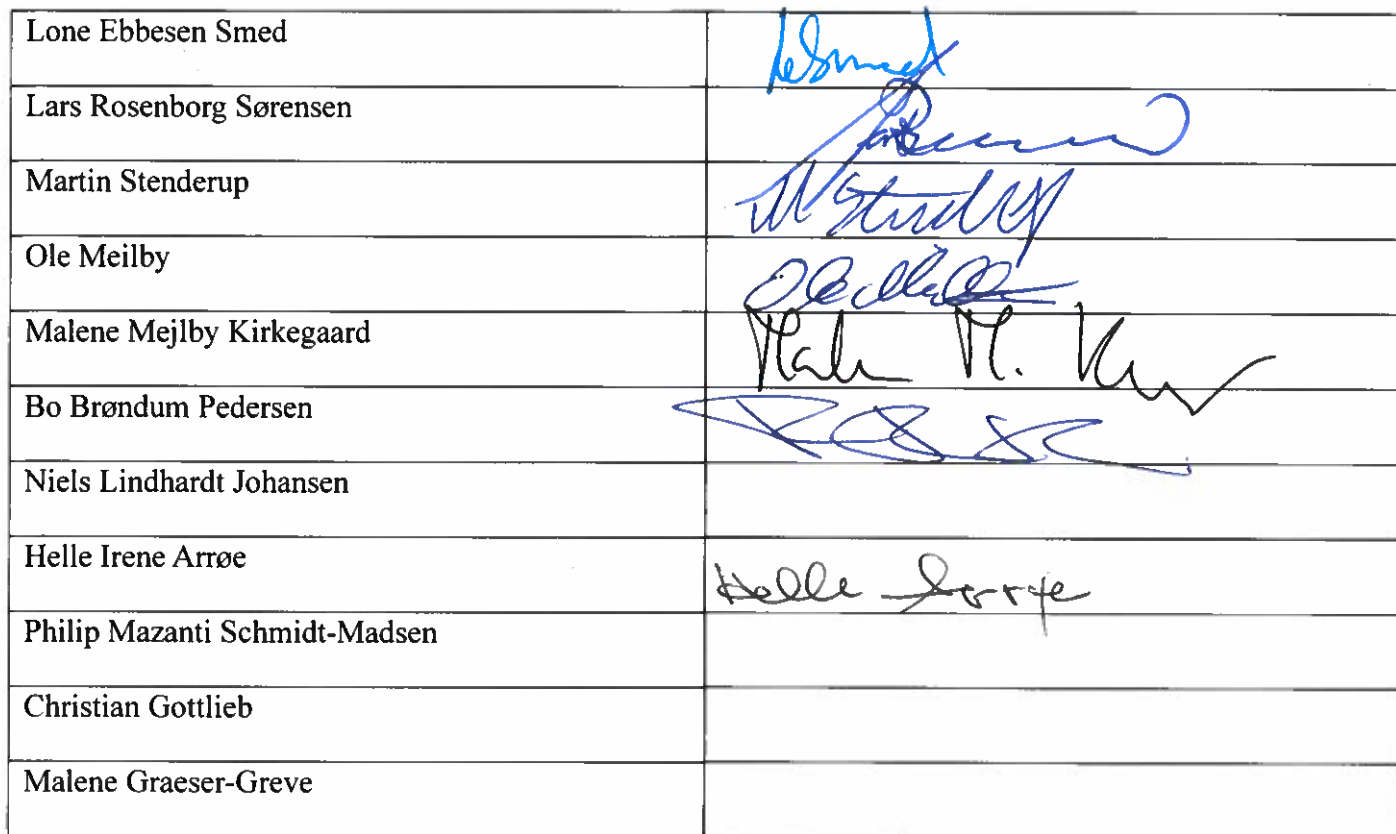 Lone Ebbesen Smed
Lars Rosenborg Sørensen
Martin Stenderup
Ole Meilby
Malene Mejlby Kirkegaard
Malene M.
Bo Brøndum Pedersen
Niels Lindhardt Johansen
Helle Irene Arrøe
Helle Arrøe
Philip Mazanti Schmidt-Madsen
Christian Gottlieb
Malene Graeser-Greve